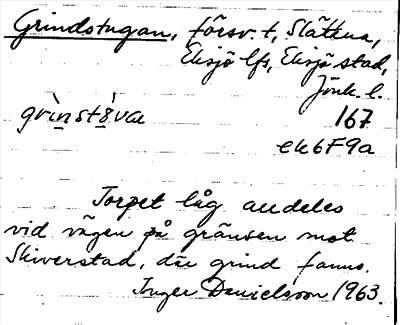 Grindstugan, försv. t, Slätkna,
Eksjö lfs, Eksjö stad,
Jönk. l.
167
grìnst8̀va
ek6F9a
Torpet låg alldeles
vid vägen på gränsen mot
Skiverstad, där grind fanns.
Inger Danielsson 1963.